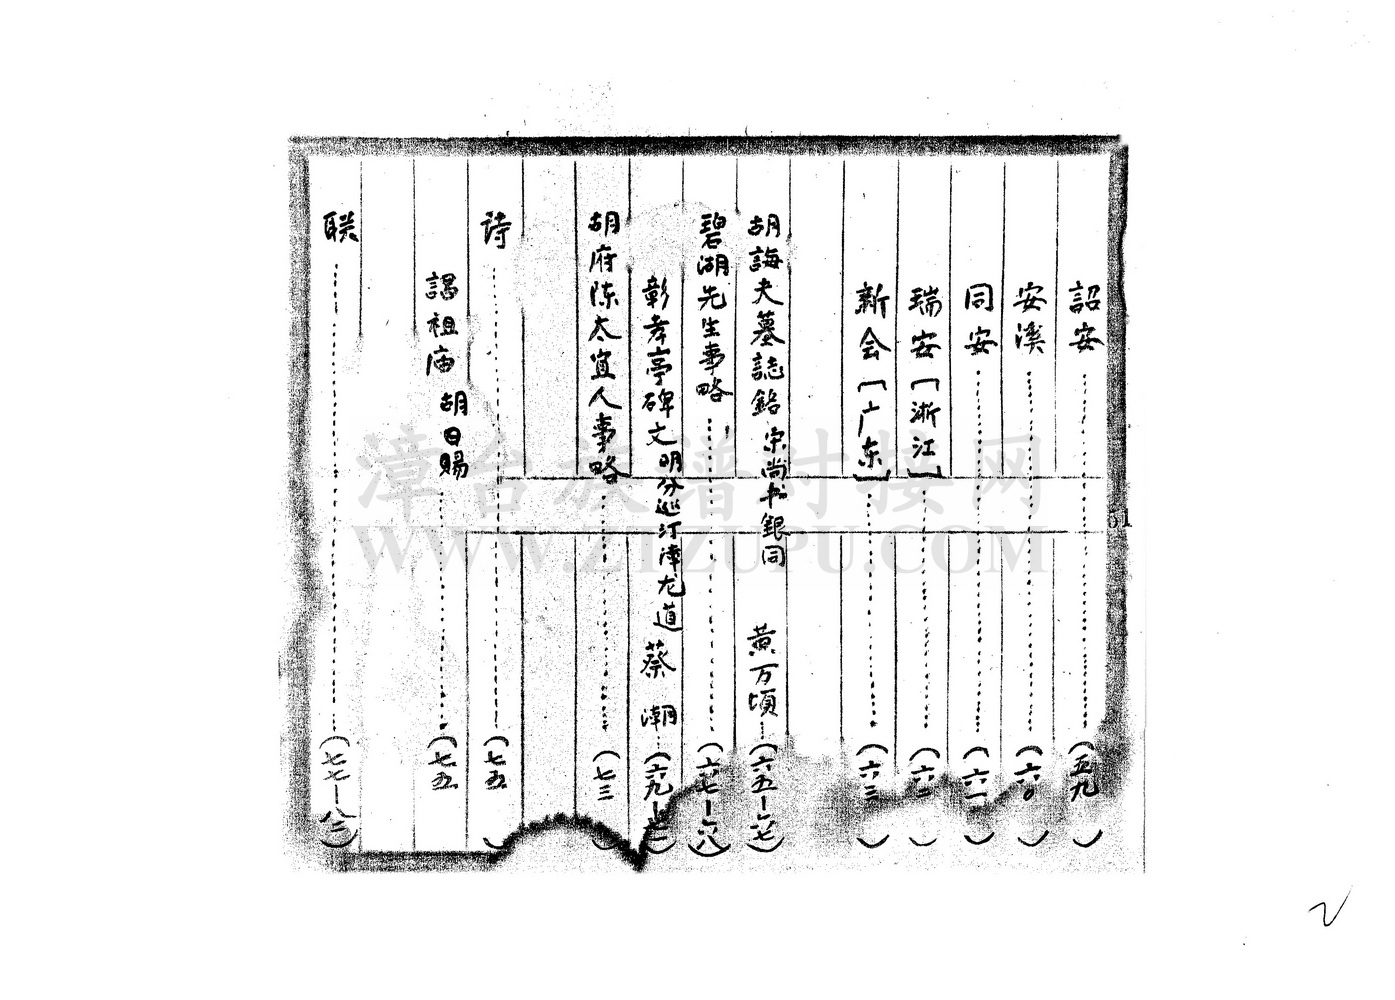 詔安（五九）
安溪（六〇）
同安（六一）
瑞安［浙江］（六二）
新会［广东］（六三）
胡誨夫墓誌銘 宋尚书銀同 黄万頃（六五—六七）
碧湖先生事略（六七—六八）
彰孝亭碑文 明分巡汀漳龙道 蔡潮（六九—七一）
胡府陈太宜人事略（七三）
诗（七五）
謁祖庙 胡日賜（七五）
联（七七—八三）
漳台族谱对接网
WWW.ZIZUPU.COM
51
2